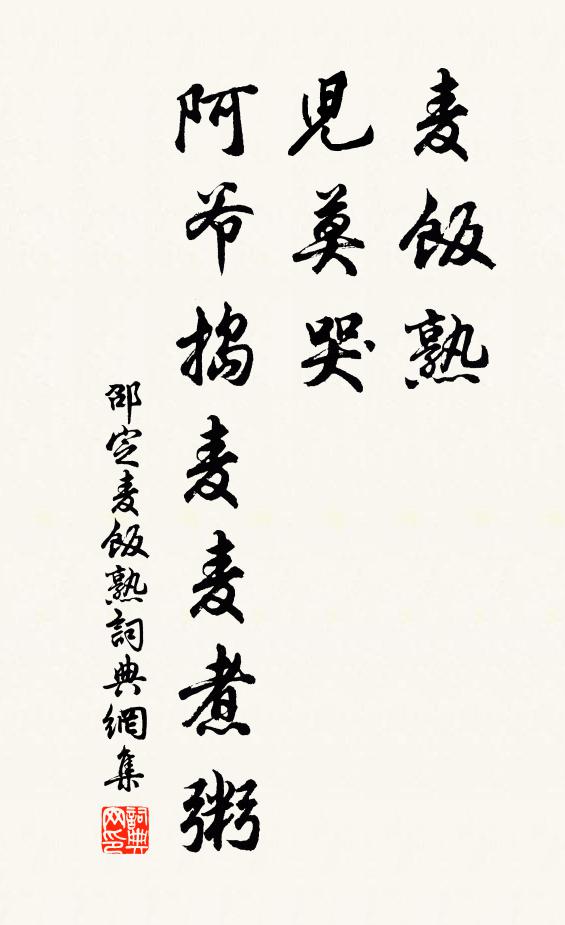 麦飯熟
兒莫哭
阿爷搗麦麦煮粥
邵定麦飯熟詞典網集
詞典网印